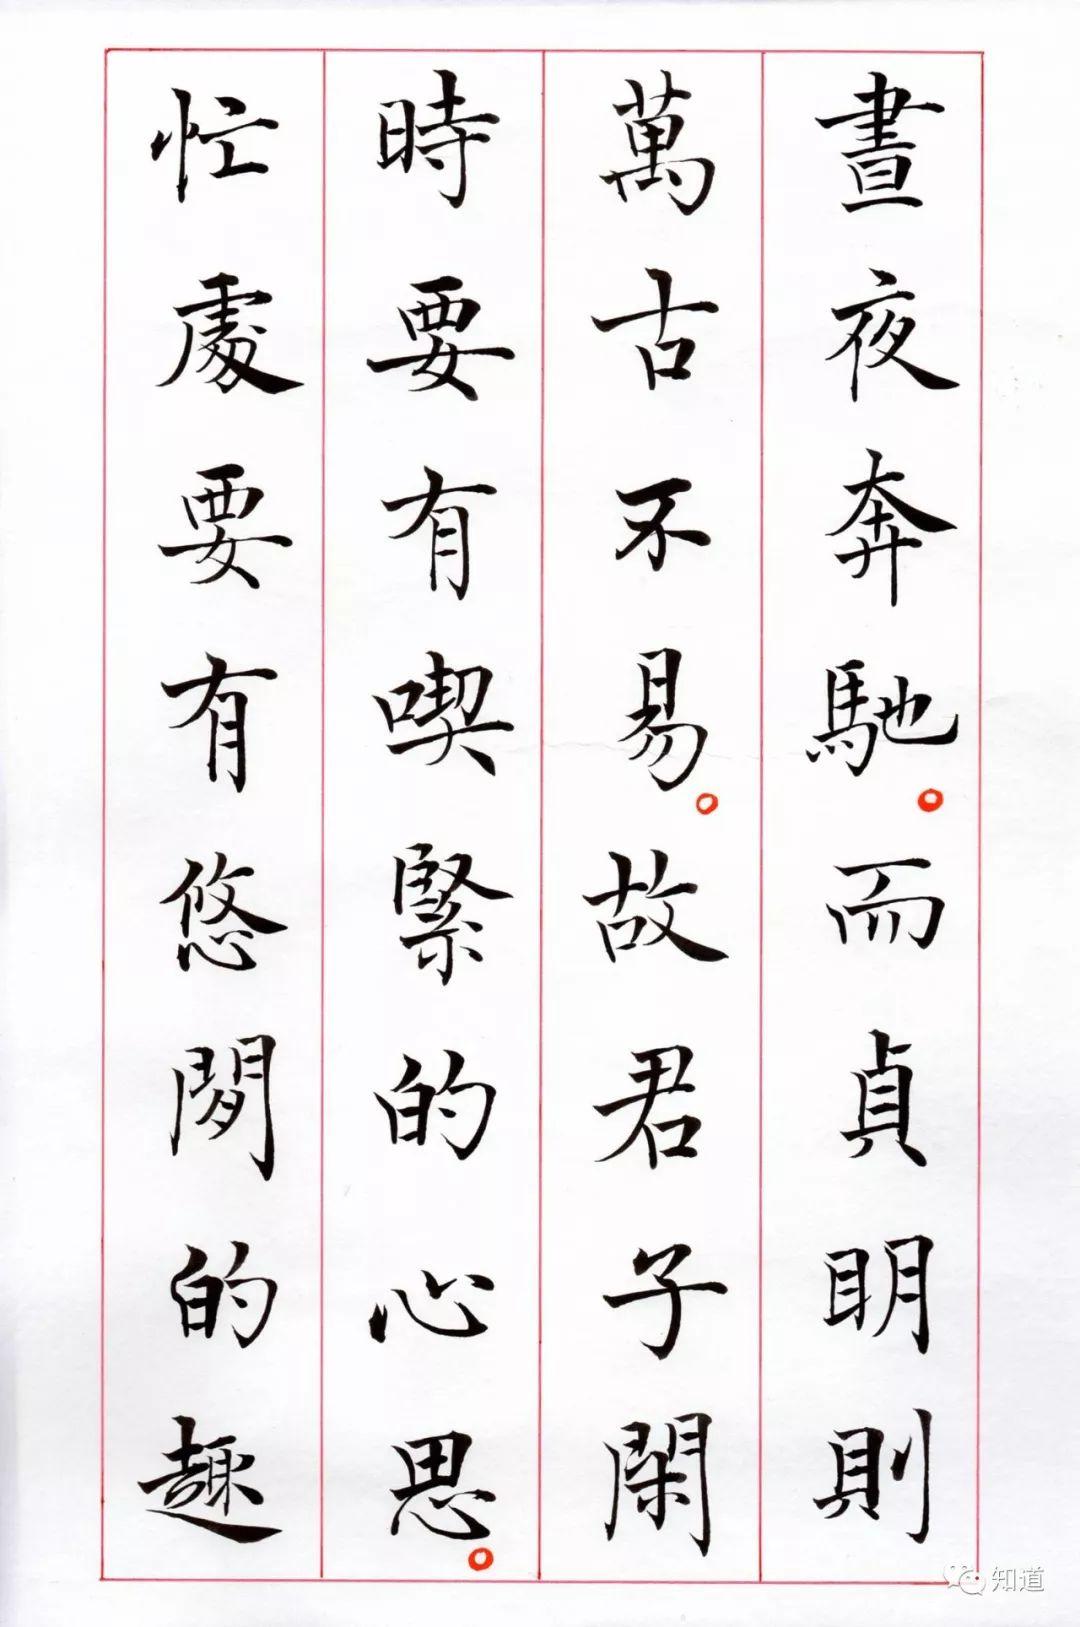 晝夜奔馳。而貞明則
萬古不易。故君子閑
時要有喫緊的心思。
忙處要有悠閒的趣
知道